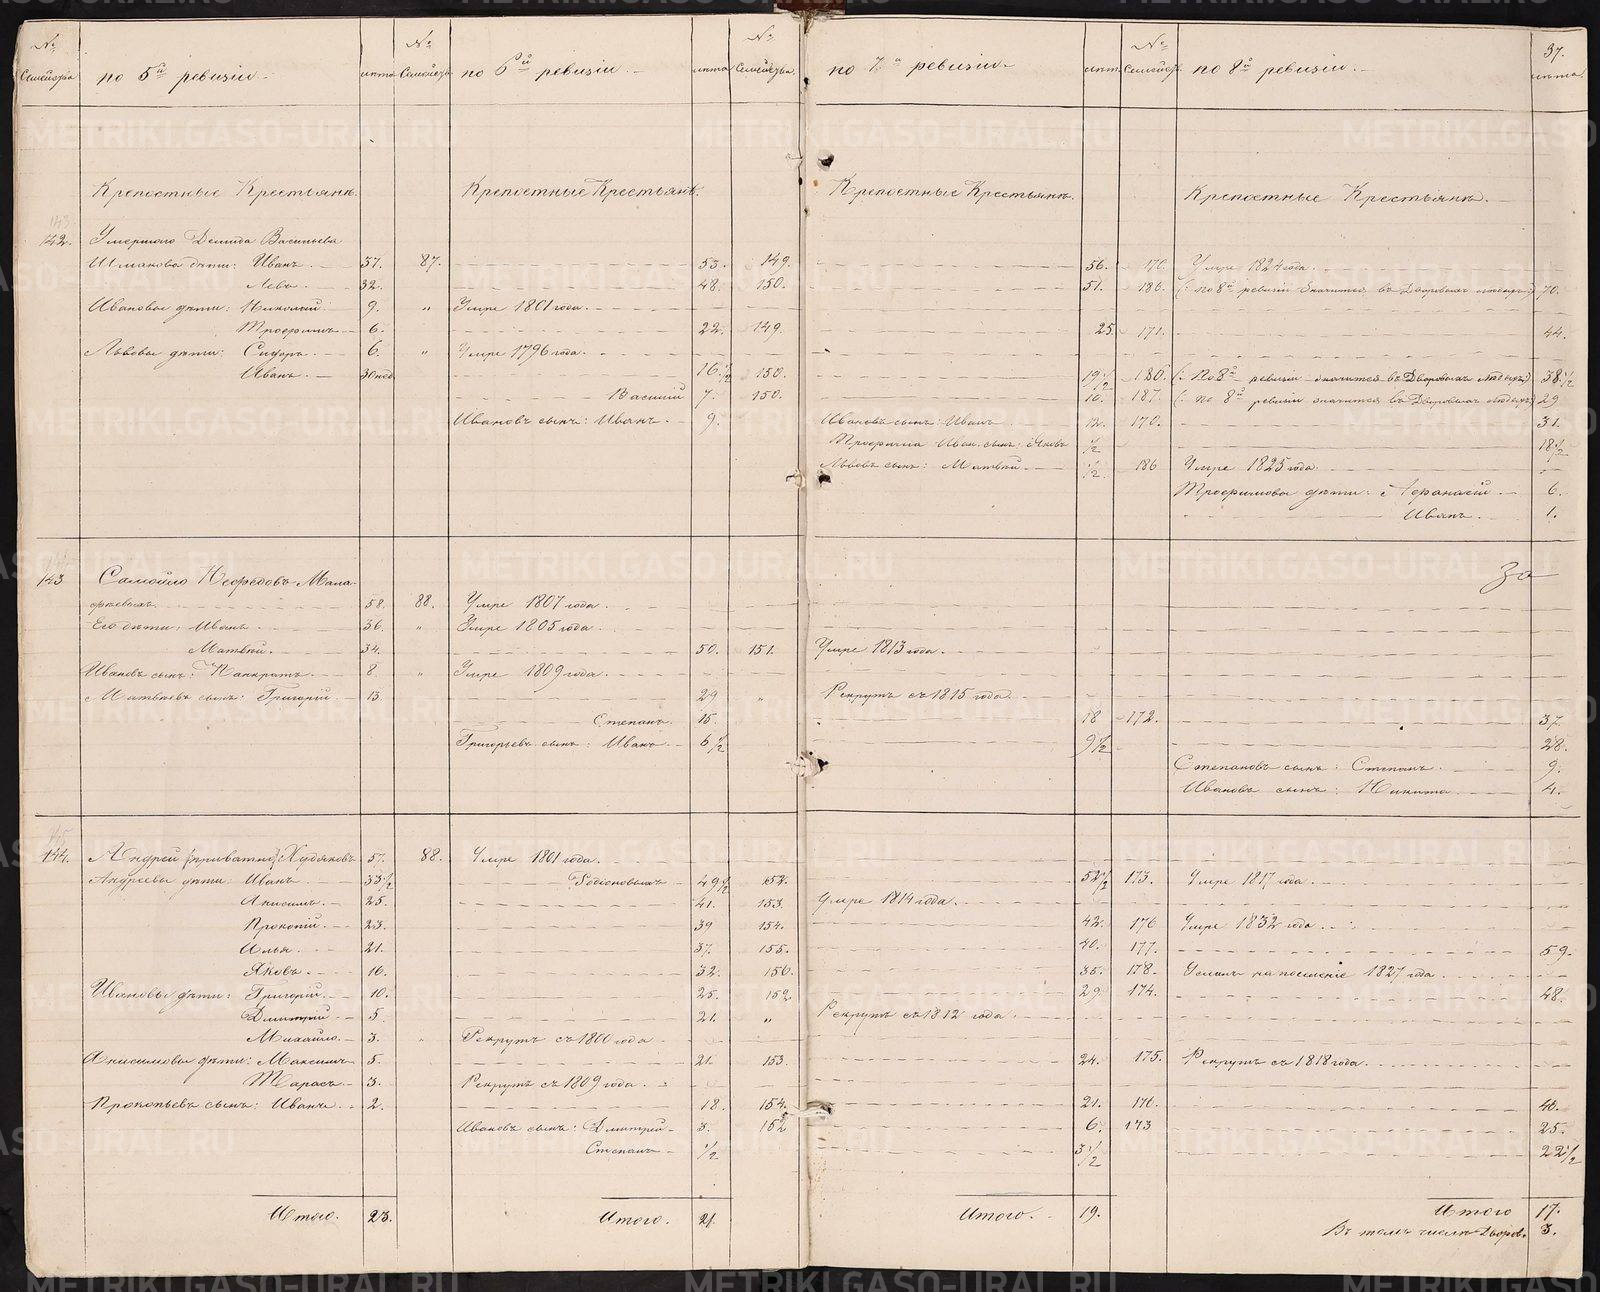 № Семейства | по 5й ревизiи. | лѣта | № Семейства | по 6й ревизiи. | лѣта | № Семейства. | по 7й ревизiи. | лѣта | № Семейст. | по 8й ревизiи. | 37. лѣта.
Крепостные Крестьянѣ. | Крепостные Крестьянѣ. | Крепостные Крестьянѣ. | Крепостные Крестьянѣ.
142. Умершаго Демида Васильева
Шмакова дѣти: Иванъ. 57. | 87. | 53. | 149. | 56. | 170. | Умре 1824 года.
Левъ. 32. | 48. | 150. | 51. | 186. | (: по 8й ревизiи значится въ Дворовыхъ людехъ:) 70.
Ивановы дѣти: Николай. 9. | „ | Умре 1801 года.
Трофимъ. 6. | 22. | 149. | 25. | 171. | 44.
Львовы дѣти: Сидоръ. 6. | „ | Умре 1796 года.
Иванъ. 30 нед. | 16 1/2 | 150. | 19 1/2 | 180. | (: По 8й ревизiи значится въ Дворовыхъ людехъ:) 38 1/2
Василiй 7. | 150. | 10. | 187. | (: по 8й ревизiи значится въ Дворовыхъ людехъ:) 29.
Ивановъ сынъ: Иванъ. 9. | Ивановъ сынъ: Иванъ 12. | 170. | 31.
Трофима Иван. сынъ: Яковъ 1/2 | 18 1/2
Львовъ сынъ: Матвѣй. 1/2 | 186 | Умре 1825 года.
Трофимовы дѣти: Афанасiй. 6.
Иванъ. 1.
143 Самойло Нефедовъ Мала-
фѣевыхъ. 58. | 88. | Умре 1807 года.
Его дѣти: Иванъ. 36. | „ | Умре 1805 года.
Матвѣй. 34. | 50. | 151. | Умре 1813 года.
Ивановъ сынъ: Панкратъ. 8. | „ | Умре 1809 года.
Матвѣевъ сынъ: Григорiй. 13. | 29 | „ | Рекрутъ съ 1815 года.
Степанъ. 15. | 18 | 172. | 37.
Григорьевъ сынъ: Иванъ. 6 1/2 | 9 1/2 | 28.
Степановъ сынъ: Степанъ. 9.
Ивановъ сынъ: Никита. 4.
144. Андрей (приватно) Худяковъ 57. | 88. | Умре 1801 года.
Андреевы дѣти: Иванъ. 33 1/2 | Родiоновыхъ 49 1/2 | 152. | 52 1/2 | 173. | Умре 1817 года.
Анисимъ. 25. | 41. | 153. | Умре 1814 года.
Прокопiй. 23. | 39 | 154. | 42. | 176 | Умре 1832 года.
Илья. 21. | 37. | 155. | 40. | 177. | 59.
Яковъ. 16. | 32. | 156. | 35. | 178. | Усланъ на поселенiе 1827 года.
Ивановы дѣти: Григорiй. 10. | 25. | 152. | 29. | 174. | 48.
Дмитрiй. 5. | 21. | „ | Рекрутъ съ 1812 года.
Михайло. 3. | „ | Рекрутъ съ 1800 года
Анисимовы дѣти: Максимъ 5. | 21. | 153. | 24. | 175. | Рекрутъ съ 1818 года.
Тарасъ. 3. | Рекрутъ съ 1809 года.
Прокопьевъ сынъ: Иванъ. 2. | 18. | 154. | 21. | 176. | 40.
Ивановъ сынъ: Дмитрiй. 3. | 152 | 6. | 173 | 25.
Степанъ 1/2 | 3 1/2 | 22 1/2
Итого. 23. | Итого. 21. | Итого. 19. | Итого 17.
Въ томъ числѣ Дворов. 3.
METRIKI.GASO-URAL.RU